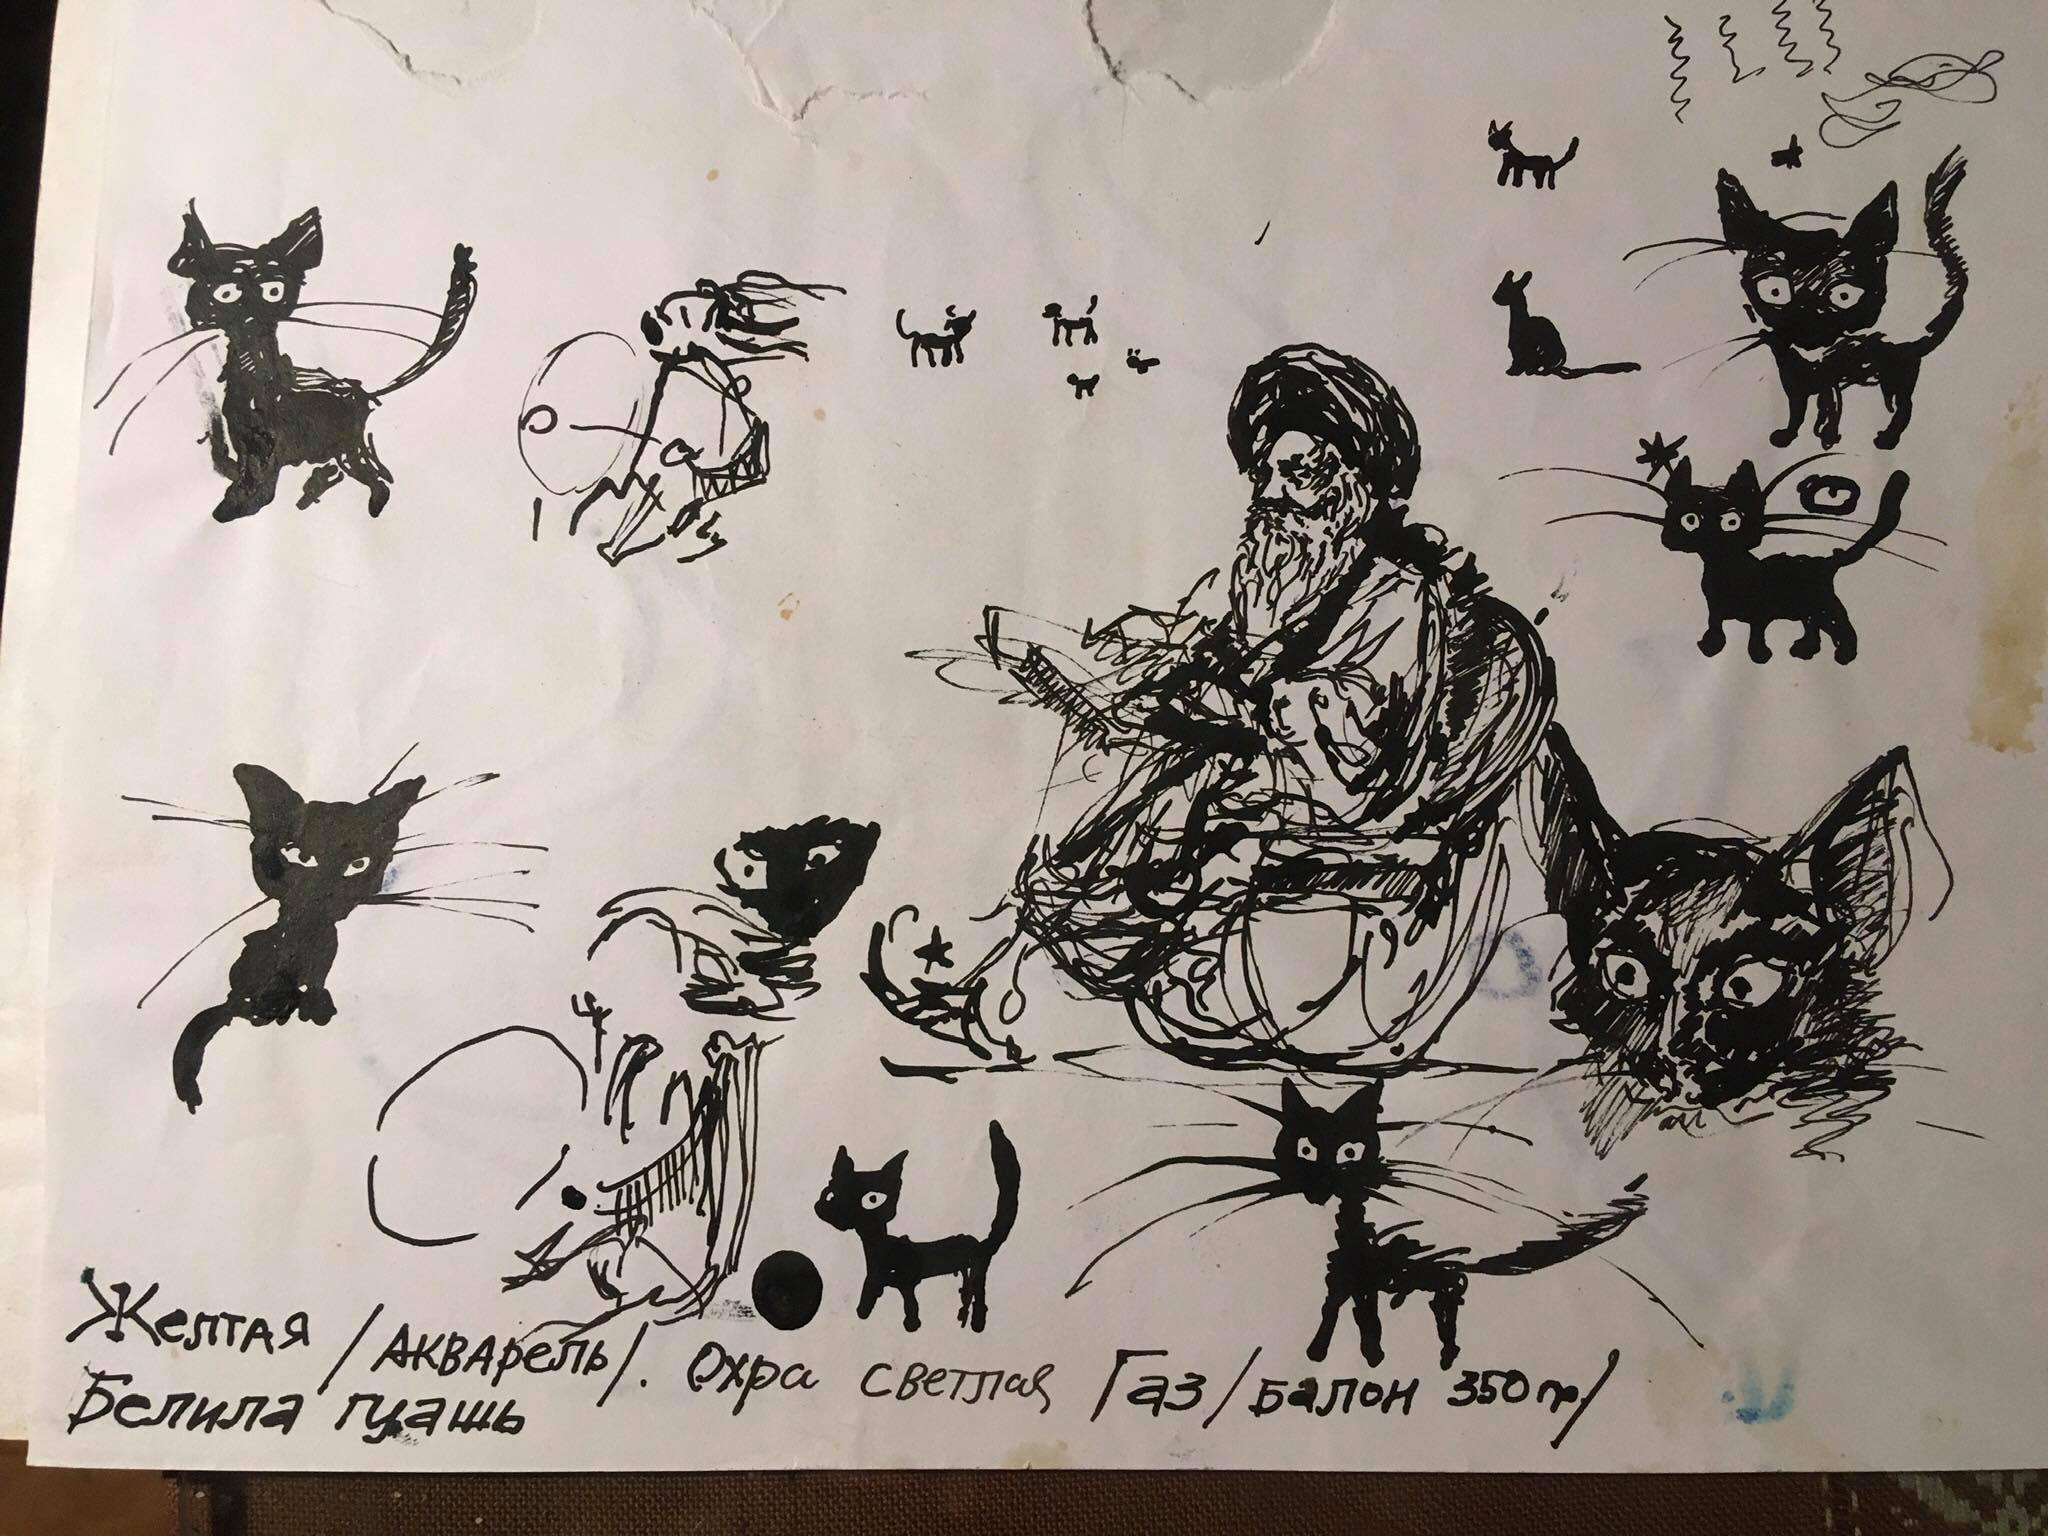 Желтая /Акварель/. Охра светлая Газ/Балон 350гр/
Белила гуашь